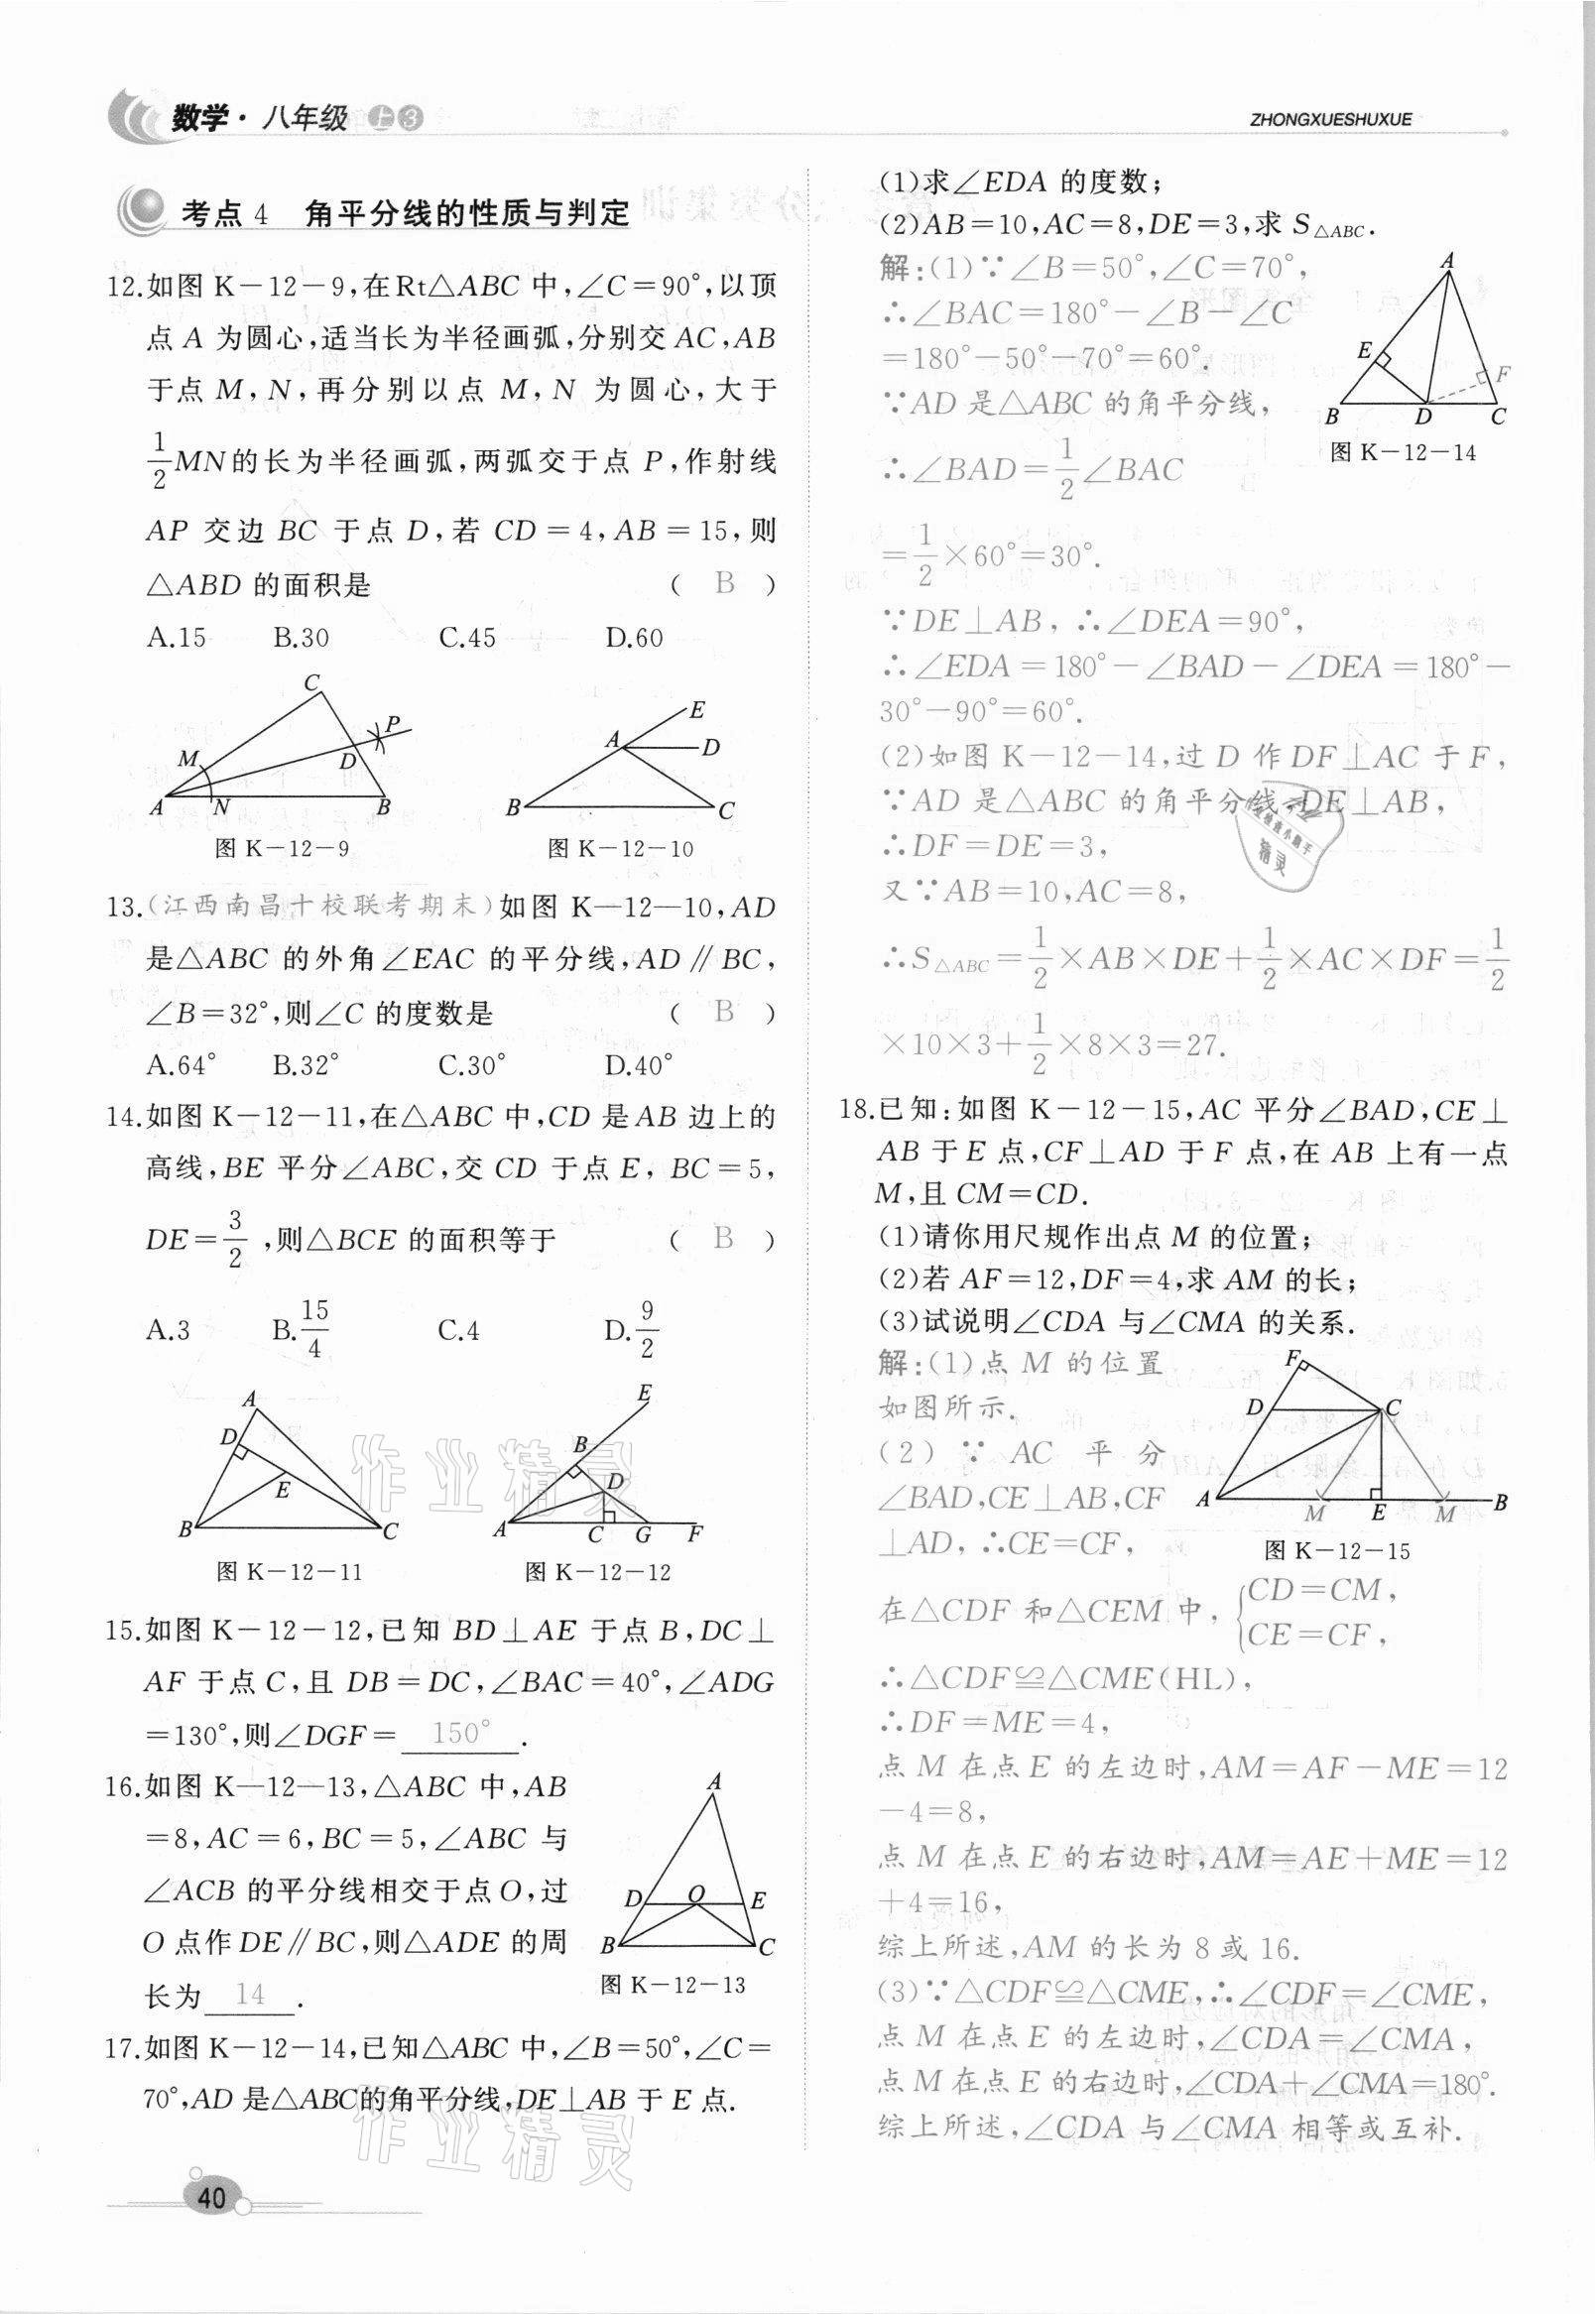 数学·八年级 上 3
ZHONGXUESHUXUE
考点 4 角平分线的性质与判定
12.如图 K-12-9,在Rt△ABC 中,∠C=90°,以顶
点 A 为圆心,适当长为半径画弧,分别交 AC,AB
于点 M,N,再分别以点 M,N 为圆心,大于
1/2 MN的长为半径画弧,两弧交于点 P,作射线
AP 交边 BC 于点 D,若 CD=4,AB=15,则
△ABD 的面积是 ( B )
A.15 B.30 C.45 D.60
C P M D A N B
E A D B C
图 K-12-9 图 K-12-10
13.(江西南昌十校联考期末)如图 K-12-10,AD
是△ABC 的外角∠EAC 的平分线,AD∥BC,
∠B=32°,则∠C 的度数是 ( B )
A.64° B.32° C.30° D.40°
14.如图 K-12-11,在△ABC 中,CD 是 AB 边上的
高线,BE 平分∠ABC,交 CD 于点 E,BC=5,
DE=3/2,则△BCE 的面积等于 ( B )
A.3 B.15/4 C.4 D.9/2
A D E B C
E B D A C G F
图 K-12-11 图 K-12-12
15.如图 K-12-12,已知 BD⊥AE 于点 B,DC⊥
AF 于点 C,且 DB=DC,∠BAC=40°,∠ADG
=130°,则∠DGF= 150° .
16.如图 K-12-13,△ABC 中,AB
=8,AC=6,BC=5,∠ABC 与
∠ACB 的平分线相交于点O,过
O 点作DE∥BC,则△ADE 的周
长为 14 .
A D O E B C
图 K-12-13
17.如图 K-12-14,已知△ABC 中,∠B=50°,∠C=
70°,AD 是△ABC的角平分线,DE⊥AB 于 E 点.
40
(1)求∠EDA 的度数;
(2)AB=10,AC=8,DE=3,求 S△ABC.
解:(1)∵∠B=50°,∠C=70°,
∴∠BAC=180°-∠B-∠C
=180°-50°-70°=60°.
∵AD 是△ABC 的角平分线,
∴∠BAD=1/2∠BAC
=1/2×60°=30°.
A E F B D C
图 K-12-14
∵DE⊥AB,∴∠DEA=90°,
∴∠EDA=180°-∠BAD-∠DEA=180°-
30°-90°=60°.
(2)如图 K-12-14,过 D 作 DF⊥AC 于 F,
∵AD 是△ABC 的角平分线,DE⊥AB,
∴DF=DE=3,
又∵AB=10,AC=8,
∴S△ABC=1/2×AB×DE+1/2×AC×DF=1/2
×10×3+1/2×8×3=27.
18.已知:如图 K-12-15,AC 平分∠BAD,CE⊥
AB 于 E 点,CF⊥AD 于 F 点,在 AB 上有一点
M,且 CM=CD.
(1)请你用尺规作出点 M 的位置;
(2)若 AF=12,DF=4,求 AM 的长;
(3)试说明∠CDA 与∠CMA 的关系.
解:(1)点 M 的位置
如图所示.
(2)∵AC 平分
∠BAD,CE⊥AB,CF
⊥AD,∴CE=CF,
F D C A M E M B
图 K-12-15
在△CDF 和△CEM 中,{CD=CM,
CE=CF,
∴△CDF≌△CME(HL),
∴DF=ME=4,
点 M 在点 E 的左边时,AM=AF-ME=12
-4=8,
点 M 在点 E 的右边时,AM=AE+ME=12
+4=16,
综上所述,AM 的长为 8 或 16.
(3)∵△CDF≌△CME,∴∠CDF=∠CME,
点 M 在点 E 的左边时,∠CDA=∠CMA,
点 M 在点 E 的右边时,∠CDA+∠CMA=180°.
综上所述,∠CDA 与∠CMA 相等或互补.
作业精灵
作业精灵
精灵